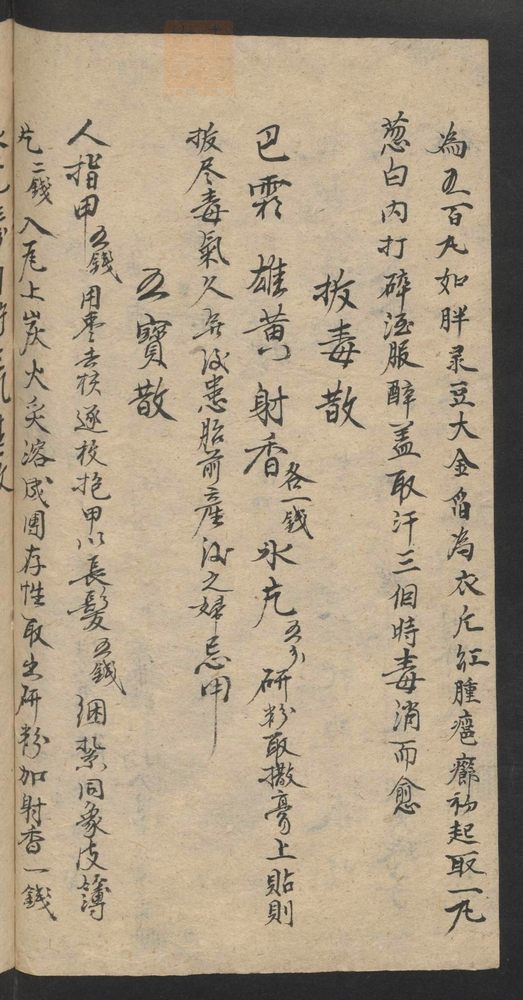 為五百丸如胖菉豆大金箔為衣凡紅腫癍癤初起取一丸
葱白內打碎酒服醉盖取汗三個時毒消而愈
拔毒散
巴霜 雄黃 射香各一錢 氷片五分 研粉取撒膏上貼則
拔尽毒氣久無後患胎前產後之婦忌用
五寶散
人指甲五錢用棗去核逐枚抱甲以長髮五錢綑紮同象皮薄
片二錢入瓦上炭火炙溶成團存性取出研粉加射香一錢